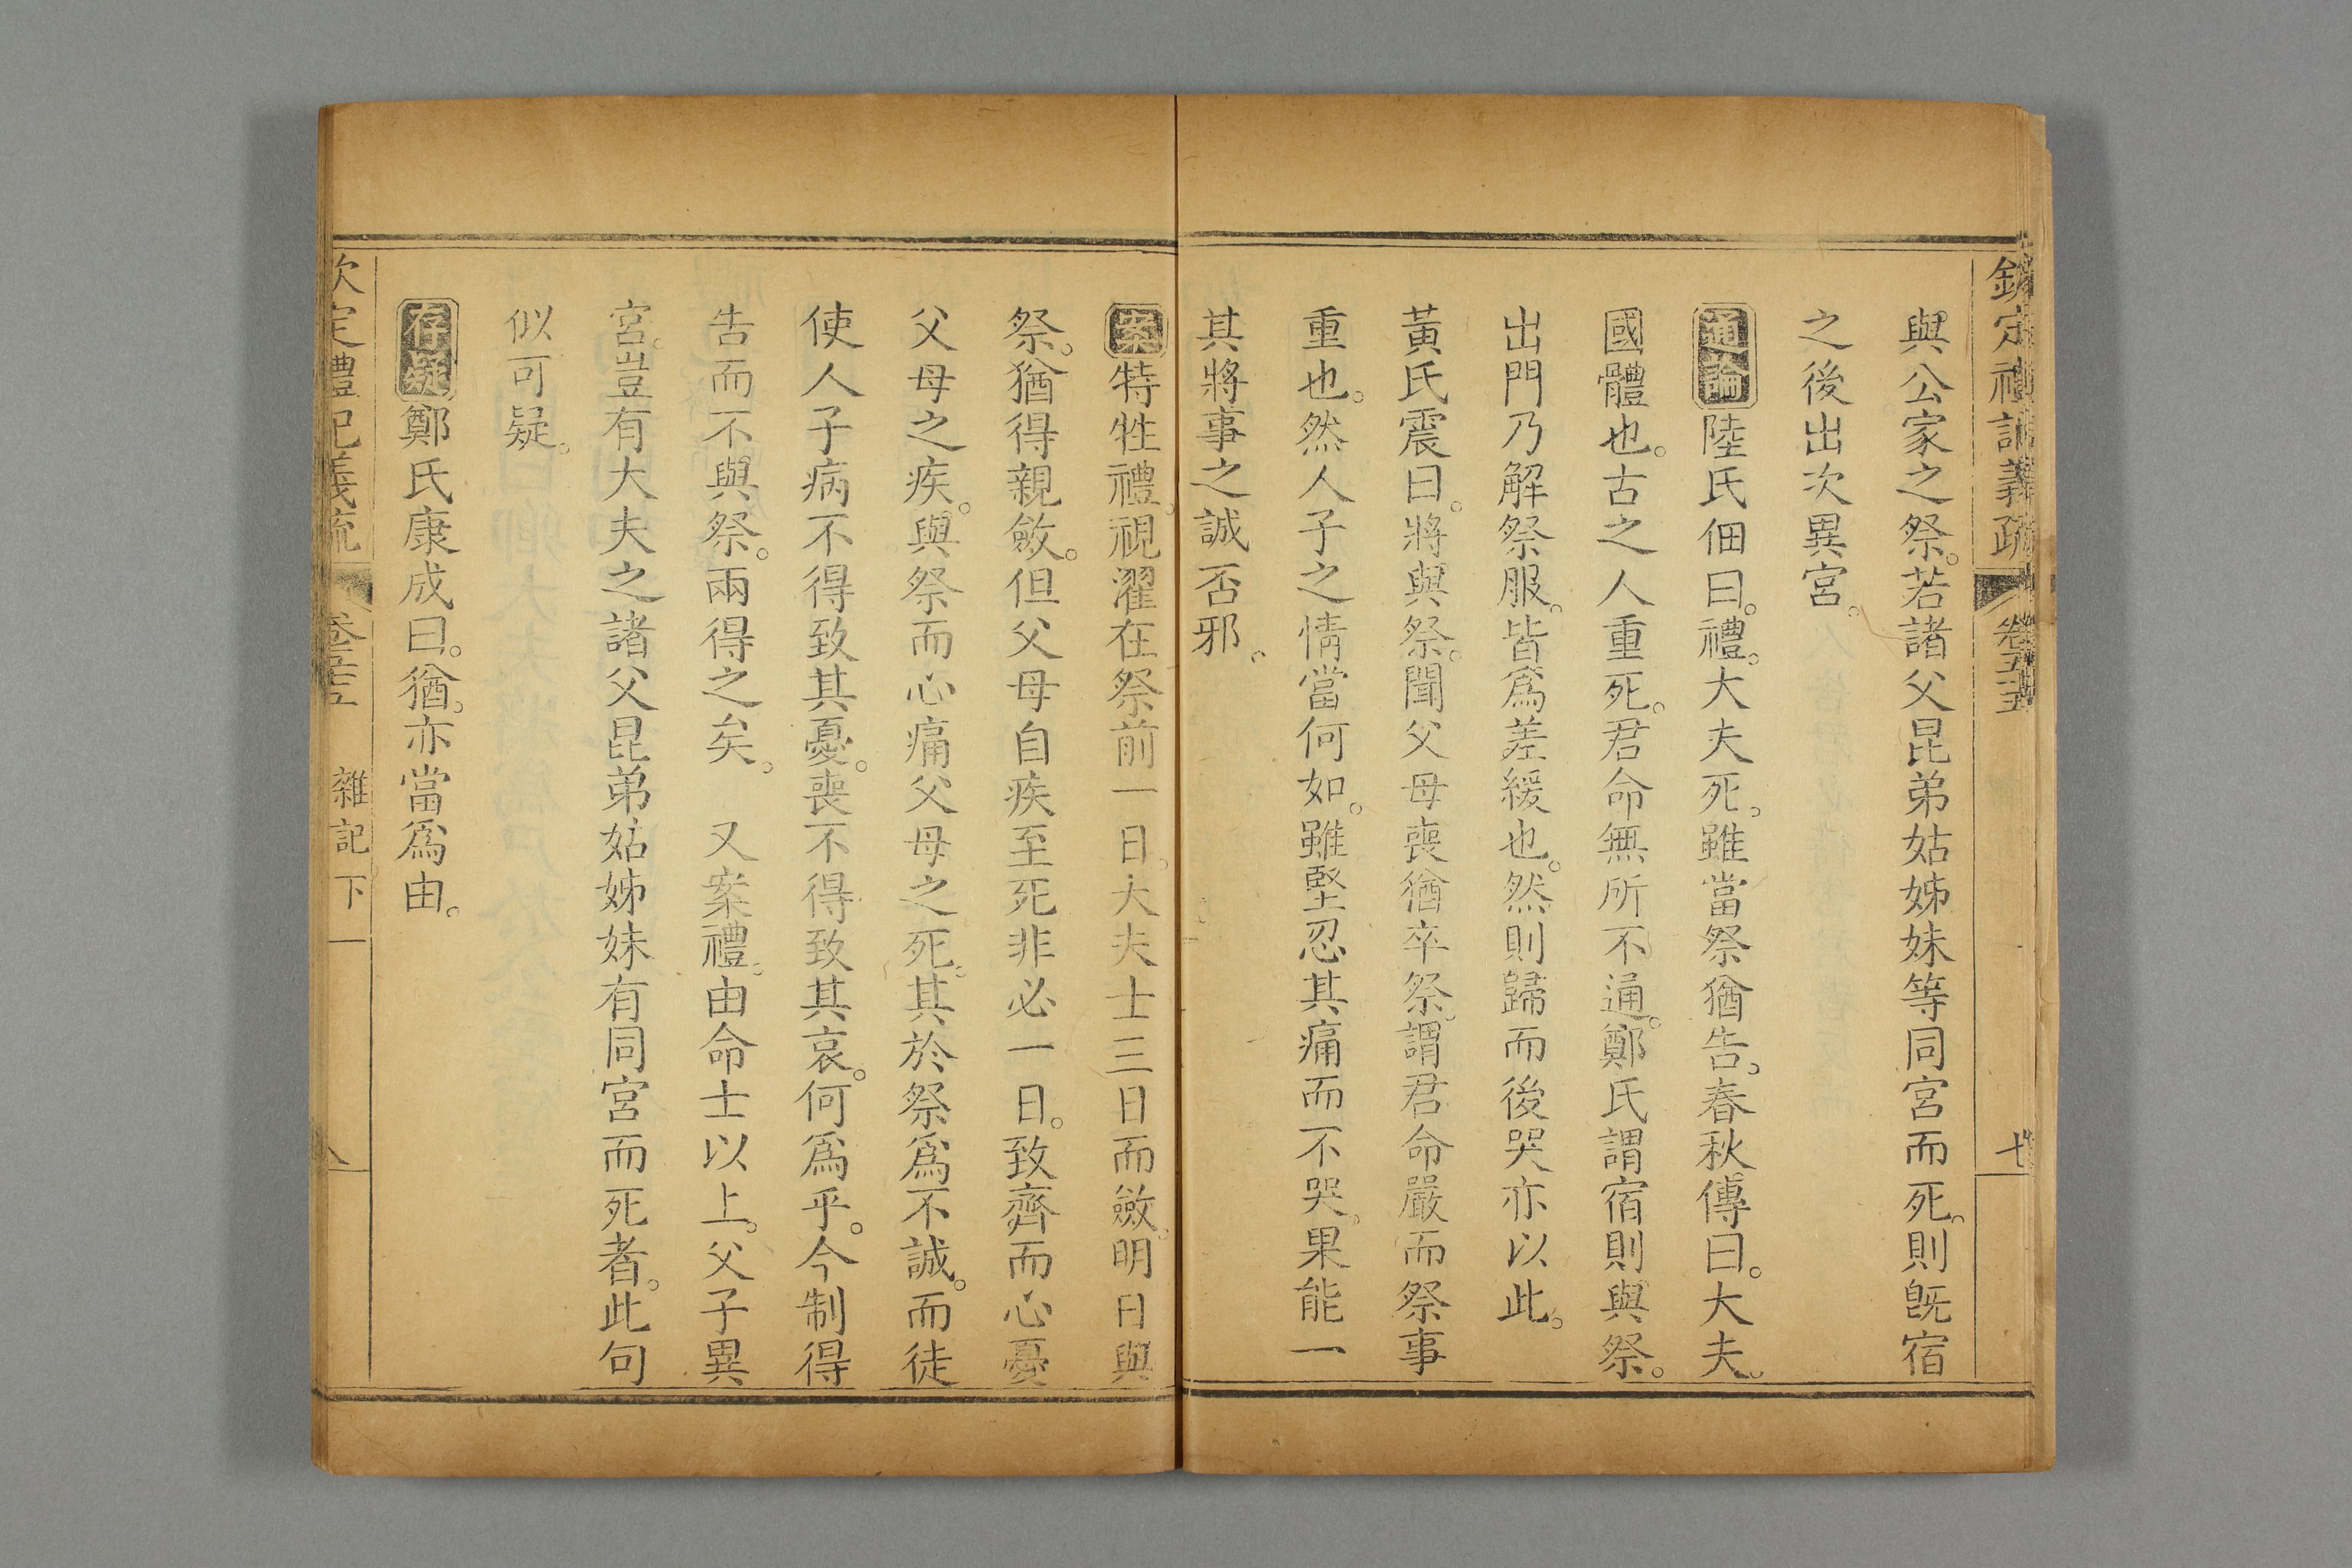 欽定禮記義疏 卷五十五 七
與公家之祭。若諸父昆弟姑姊妹等同宮而死。則旣宿
之後出次異宮。
通論陸氏佃曰。禮。大夫死。雖當祭猶告。春秋傳曰。大夫。
國體也。古之人重死。君命無所不通。鄭氏謂宿則與祭。
出門乃解祭服。皆爲差緩也。然則歸而後哭亦以此。
黃氏震曰。將與祭。聞父母喪猶卒祭。謂君命嚴而祭事
重也。然人子之情當何如。雖堅忍其痛而不哭。果能一
其將事之誠否邪。
案特牲禮。視濯在祭前一日。大夫士三日而斂。明日與
祭。猶得親斂。但父母自疾至死非必一日。致齊而心憂
父母之疾。與祭而心痛父母之死。其於祭爲不誠。而徒
使人子病不得致其憂。喪不得致其哀。何爲乎。今制得
告而不與祭。兩得之矣。 又案禮。由命士以上。父子異
宮。豈有大夫之諸父昆弟姑姊妹有同宮而死者。此句
似可疑。
存疑鄭氏康成曰。猶。亦當爲由。
欽定禮記義疏 卷五十五 雜記下 八